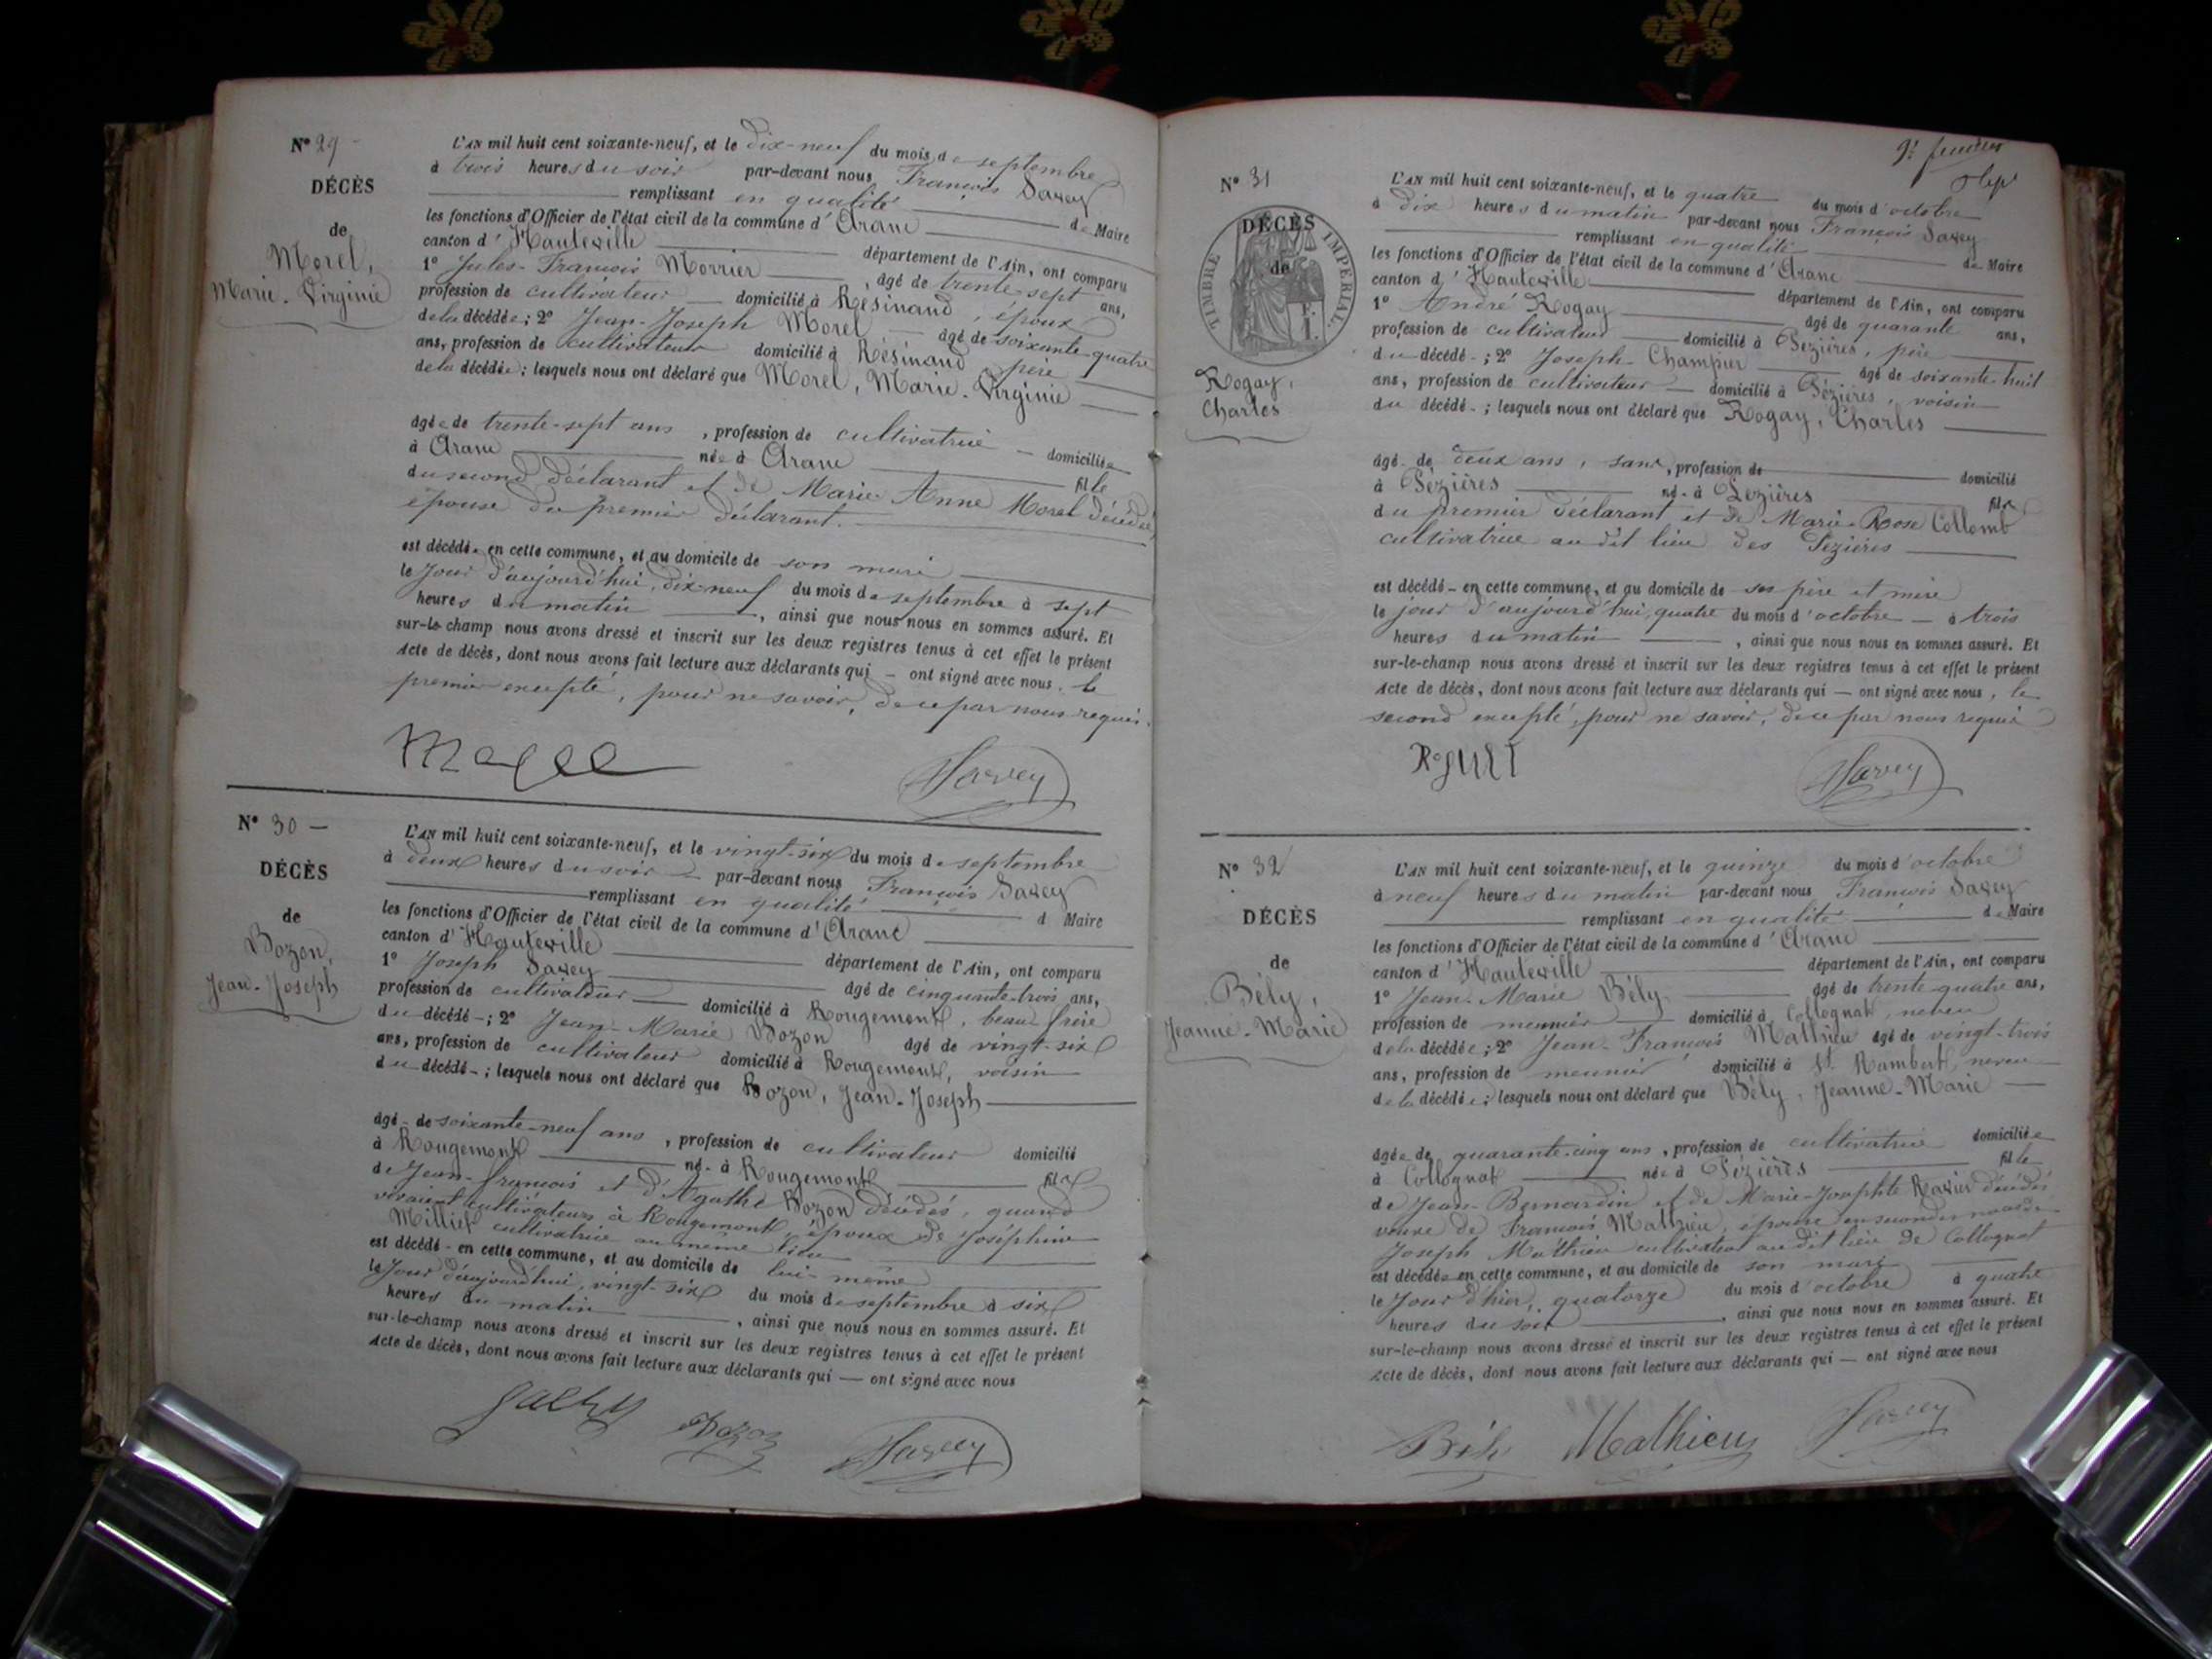 Nº 29
DÉCÈS
de
Morel,
Marie-Virginie
L'AN mil huit cent soixante-neuf, et le dix-neuf du mois de septembre
à trois heures du soir par-devant nous François Savey
remplissant en qualité de Maire
les fonctions d'Officier de l'état civil de la commune d'Aranc
canton d'Hauteville département de l'Ain, ont comparu
1º Jules-François Morrier, âgé de trente-sept ans,
profession de cultivateur domicilié à Résinand, époux
de la décédée; 2º Jean-Joseph Morel âgé de soixante-quatre
ans, profession de cultivateur domicilié à Résinand père
de la décédée; lesquels nous ont déclaré que Morel, Marie-Virginie
âgée de trente-sept ans, profession de cultivatrice domiciliée
à Aranc née à Aranc fille
du second déclarant et de Marie Anne Morel décédée,
épouse du premier déclarant.
est décédée en cette commune, et au domicile de son mari
le jour d'aujourd'hui, dix-neuf du mois de septembre à sept
heures du matin, ainsi que nous nous en sommes assuré. Et
sur-le-champ nous avons dressé et inscrit sur les deux registres tenus à cet effet le présent
Acte de décès, dont nous avons fait lecture aux déclarants qui — ont signé avec nous, le
premier excepté, pour ne savoir, de ce par nous requis.
Savey
Nº 30 —
DÉCÈS
de
Bozon,
Jean-Joseph
L'AN mil huit cent soixante-neuf, et le vingt-six du mois de septembre
à deux heures du soir par-devant nous François Savey
remplissant en qualité d Maire
les fonctions d'Officier de l'état civil de la commune d'Aranc
canton d'Hauteville département de l'Ain, ont comparu
1º Joseph Savey âgé de cinquante-trois ans,
profession de cultivateur domicilié à Rougemont, beau frère
du décédé; 2º Jean-Marie Bozon âgé de vingt-six
ans, profession de cultivateur domicilié à Rougemont, voisin
du décédé; lesquels nous ont déclaré que Bozon, Jean-Joseph
âgé de soixante-neuf ans, profession de cultivateur domicilié
à Rougemont né à Rougemont fils
de Jean-françois et d'Agathe Bozon décédés, quand
vivaient cultivateurs à Rougemont, époux de Joséphine
Milliet cultivatrice au même lieu
est décédé en cette commune, et au domicile de lui-même
le jour d'aujourd'hui, vingt-six du mois de septembre à six
heures du matin, ainsi que nous nous en sommes assuré. Et
sur-le-champ nous avons dressé et inscrit sur les deux registres tenus à cet effet le présent
Acte de décès, dont nous avons fait lecture aux déclarants qui — ont signé avec nous
Bozon Savey
Nº 31
TIMBRE IMPÉRIAL.
DÉCÈS
de
Rogay,
Charles
L'AN mil huit cent soixante-neuf, et le quatre du mois d'octobre
à dix heures du matin par-devant nous François Savey
remplissant en qualité de Maire
les fonctions d'Officier de l'état civil de la commune d'Aranc
canton d'Hauteville département de l'Ain, ont comparu
1º André Rogay âgé de quarante ans,
profession de cultivateur domicilié à Pézières, père
du décédé; 2º Joseph Champier âgé de soixante-huit
ans, profession de cultivateur domicilié à Pézières, voisin
du décédé; lesquels nous ont déclaré que Rogay, Charles
âgé de deux ans, sans, profession de domicilié
à Pézières né à Pézières fils
du premier déclarant et de Marie-Rose Collomb
cultivatrice au dit lieu des Pézières
est décédé en cette commune, et au domicile de ses père et mère
le jour d'aujourd'hui, quatre du mois d'octobre à trois
heures du matin, ainsi que nous nous en sommes assuré. Et
sur-le-champ nous avons dressé et inscrit sur les deux registres tenus à cet effet le présent
Acte de décès, dont nous avons fait lecture aux déclarants qui — ont signé avec nous, le
second excepté, pour ne savoir, de ce par nous requis
Savey
Nº 32
DÉCÈS
de
Bély,
Jeanne-Marie
L'AN mil huit cent soixante-neuf, et le quinze du mois d'octobre
à neuf heures du matin par-devant nous François Savey
remplissant en qualité de Maire
les fonctions d'Officier de l'état civil de la commune d'Aranc
canton d'Hauteville département de l'Ain, ont comparu
1º Jean-Marie Bély âgé de trente-quatre ans,
profession de meunier domicilié à Collognat, neveu
de la décédée; 2º Jean-François Mathieu âgé de vingt-trois
ans, profession de meunier domicilié à St. Rambert, neveu
de la décédée; lesquels nous ont déclaré que Bély, Jeanne-Marie
âgée de quarante-cinq ans, profession de cultivatrice domiciliée
à Collognat née à Pézières fille
de Jean-Bernardin et de Marie-Josephte Ravier décédés
veuve de François Mathieu, épouse en secondes noces de
Joseph Mathieu cultivateur au dit lieu de Collognat
est décédée en cette commune, et au domicile de son mari
le jour d'hier, quatorze du mois d'octobre à quatre
heures du soir, ainsi que nous nous en sommes assuré. Et
sur-le-champ nous avons dressé et inscrit sur les deux registres tenus à cet effet le présent
Acte de décès, dont nous avons fait lecture aux déclarants qui — ont signé avec nous
Mathieu Savey